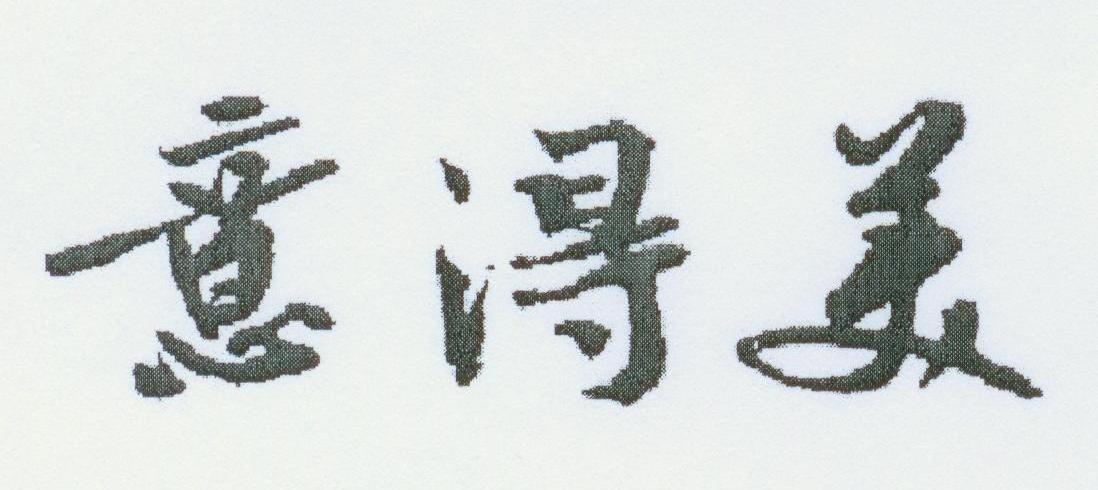 意得美